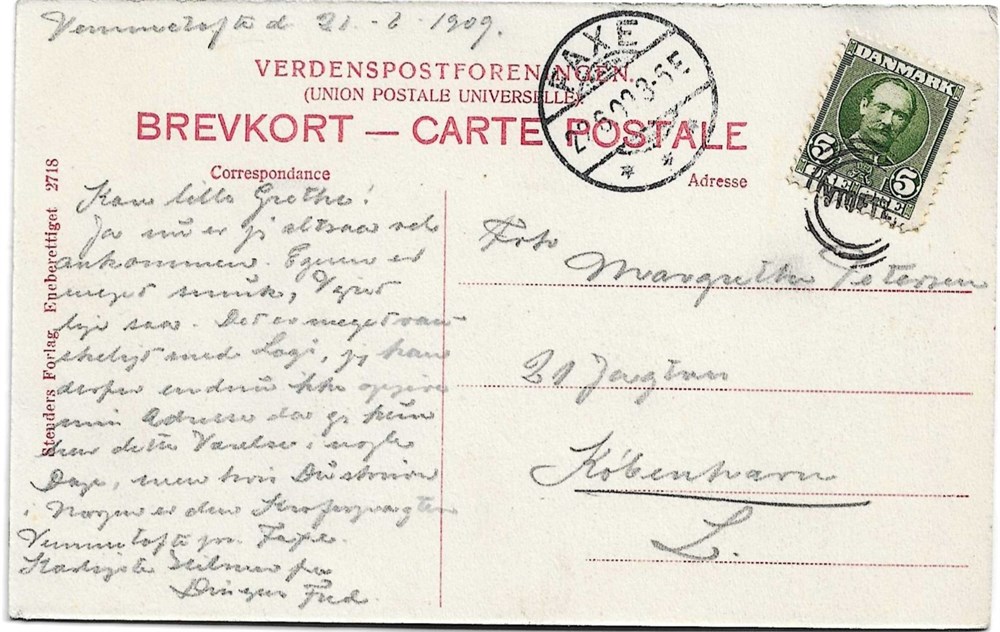 Vemmetofte d 21-6-1909.
VERDENSPOSTFORENINGEN.
(UNION POSTALE UNIVERSELLE).
BREVKORT — CARTE POSTALE
Correspondance
Adresse
Stenders Forlag Eneberettiget 2718
FAXE
DANMARK
5 5
Kære lille Grethe!
Ja nu er jeg altsaa vel
ankommen. Egnen er
meget smuk, Vejret
lige saa. Det er meget van-
skeligt med Logi, jeg kan
derfor endnu ikke opgive
min Adresse da jeg kun
har dette Værelse i nogle
Dage, men hvis Du skriver
i Morgen er den
Vemmetofte pr. Faxe.
Hilsner fra
Din
Frk
Margrethe Petersen
21
København
L.